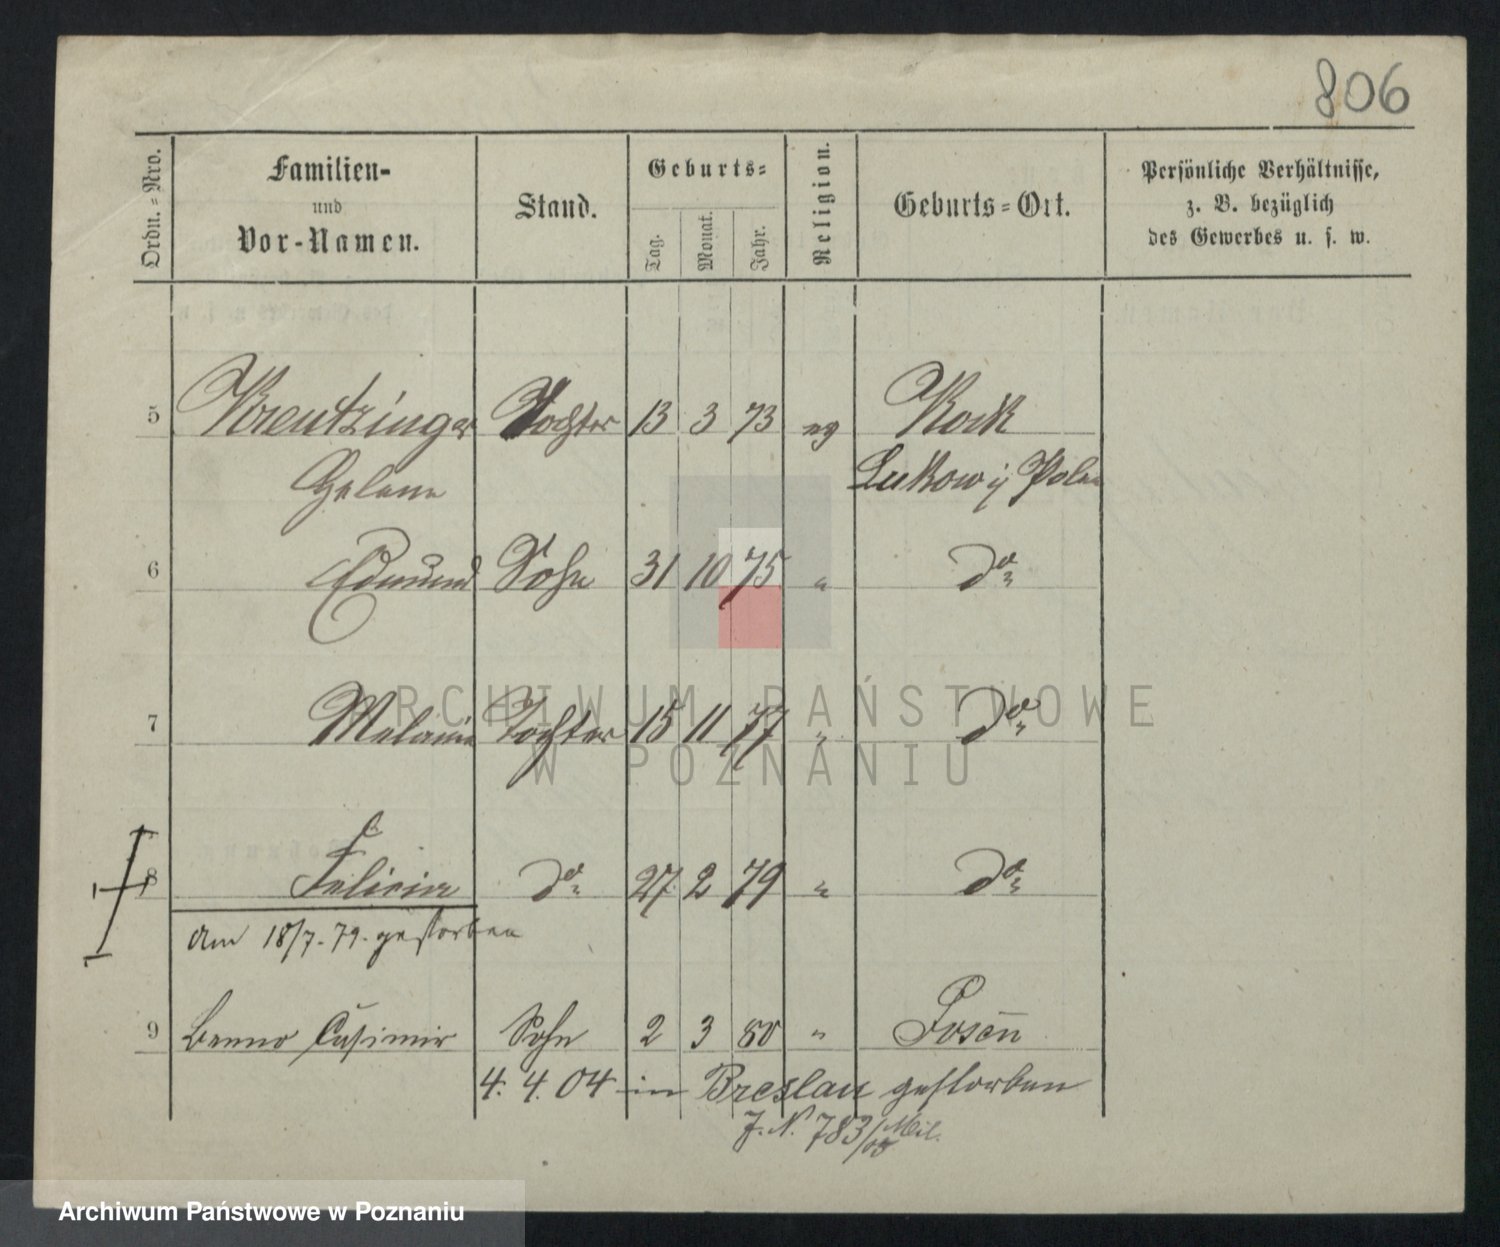 806
Ordn.=Nro.
Familien-
und
Vor-Namen.
Stand.
Geburts=
Tag.
Monat.
Jahr.
Religion.
Geburts=Ort.
Persönliche Verhältnisse,
z. B. bezüglich
des Gewerbes u. s. w.
5 Kreutzinger Tochter 13 3 73 ev Kock
Helene Lukow i/ Polen
6 Edmund Sohn 31 10 75 " do
7 Melanie Tochter 15 11 77 " do
8 Felicia do 27 2 79 " do
am 18/7. 79. gestorben
9 Benno Casimir Sohn 2 3 80 " Posen
4. 4. 04 in Breslau gestorben
J. N. 783/05 Mil.
ARCHIWUM PAŃSTWOWE
W POZNANIU
Archiwum Państwowe w Poznaniu